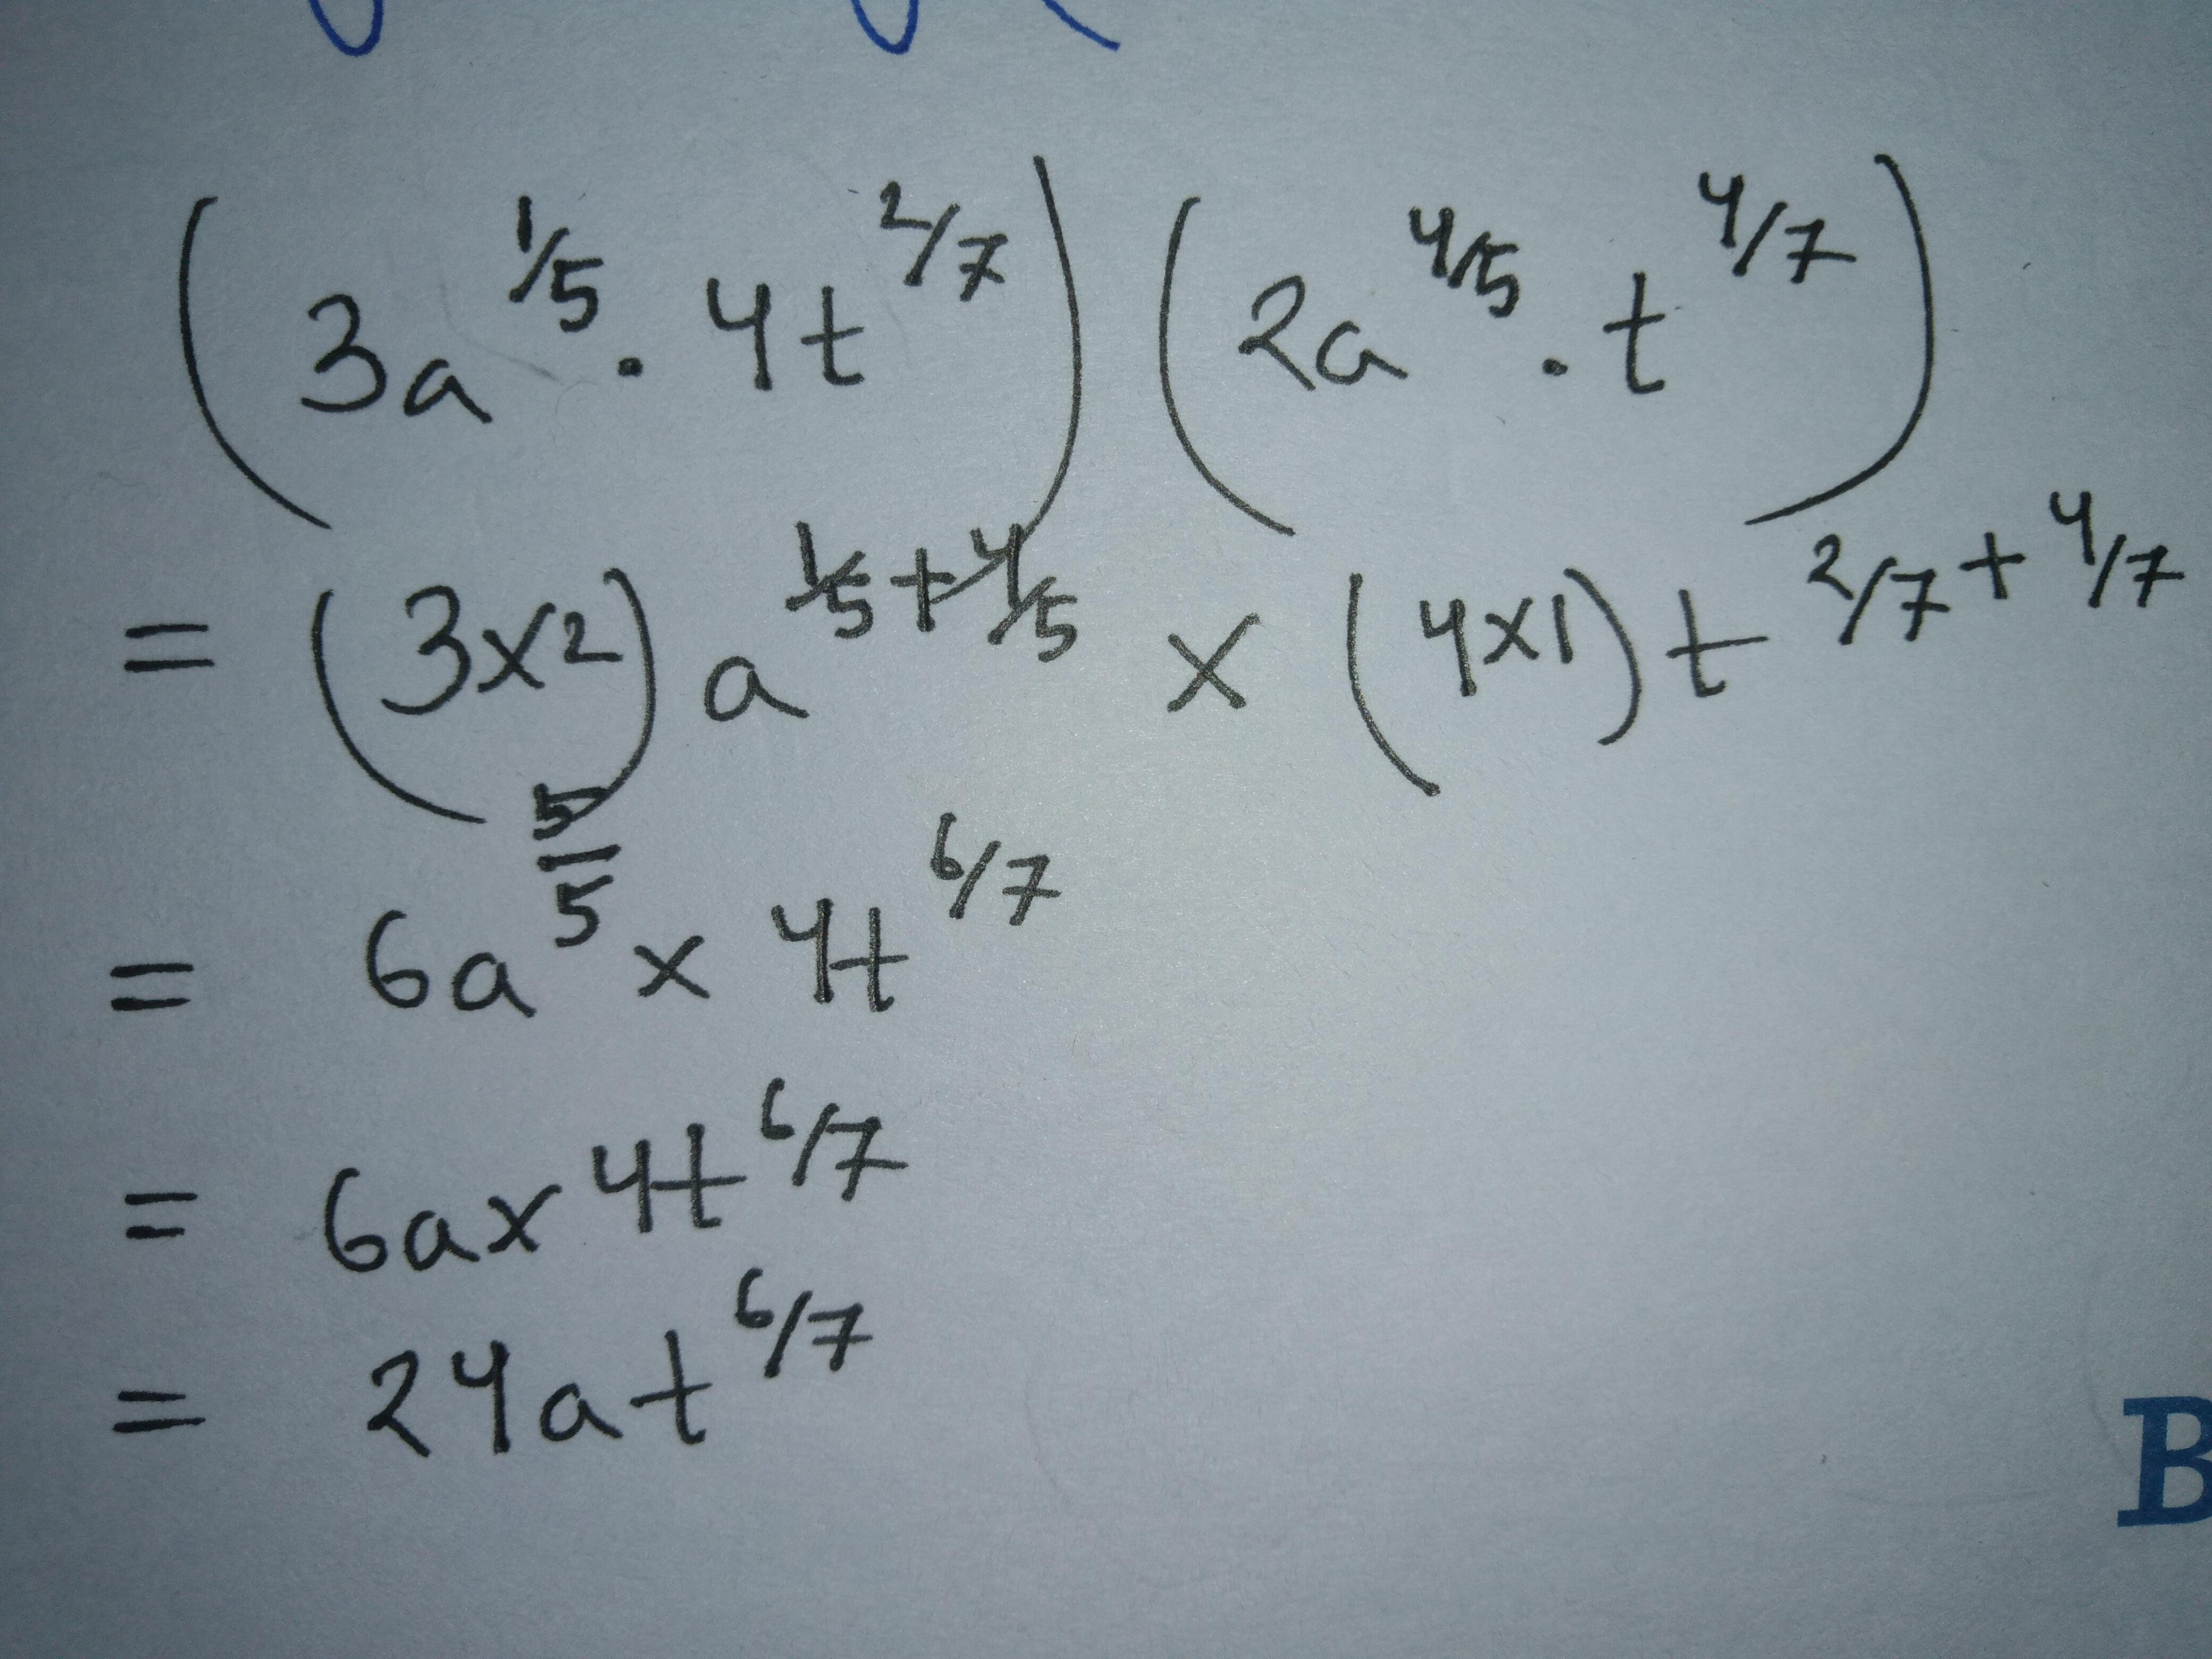 (3a^1/5 . 4t^2/7) (2a^4/5 . t^4/7)
= (3x2) a^1/5+4/5 x (4x1) t^2/7+4/7
= 6a^5/5 x 4t^6/7
= 6a x 4t^6/7
= 24at^6/7
B